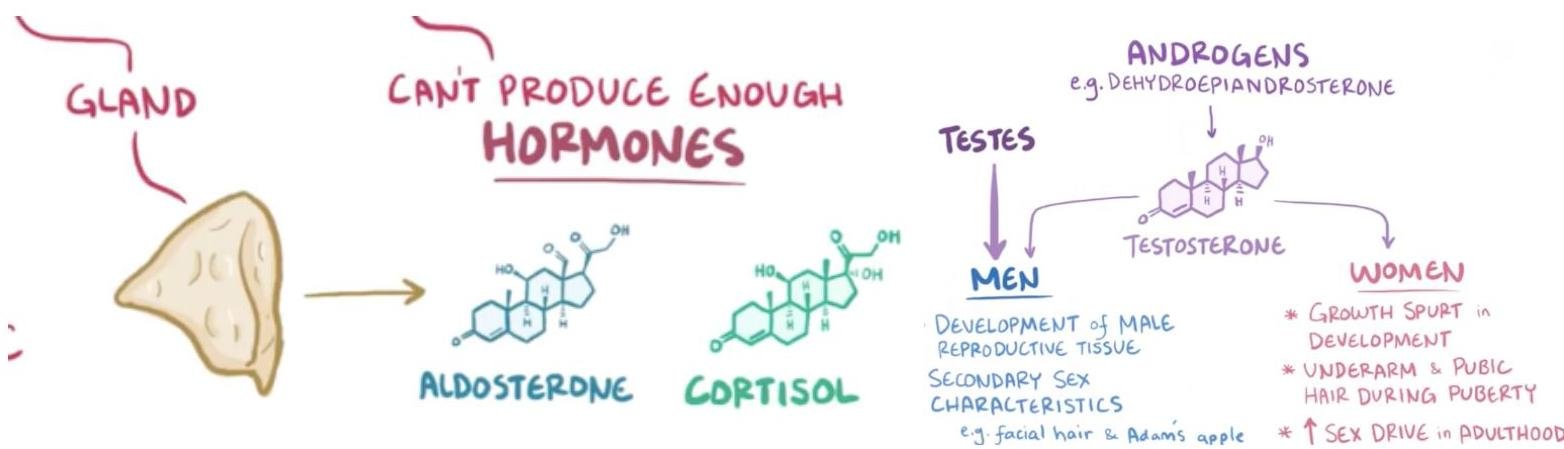 GLAND
CAN'T PRODUCE ENOUGH
HORMONES
O
HO
O
O
OH
H
H
H
ALDOSTERONE
O
HO
O
OH
OH
H
H
H
CORTISOL
ANDROGENS
e.g. DEHYDROEPIANDROSTERONE
TESTES
OH
H
H
H
O
TESTOSTERONE
MEN
DEVELOPMENT of MALE
REPRODUCTIVE TISSUE
SECONDARY SEX
CHARACTERISTICS
e.g. facial hair & Adam's apple
WOMEN
* GROWTH SPURT in
DEVELOPMENT
* UNDERARM & PUBIC
HAIR DURING PUBERTY
* ↑ SEX DRIVE in ADULTHOOD